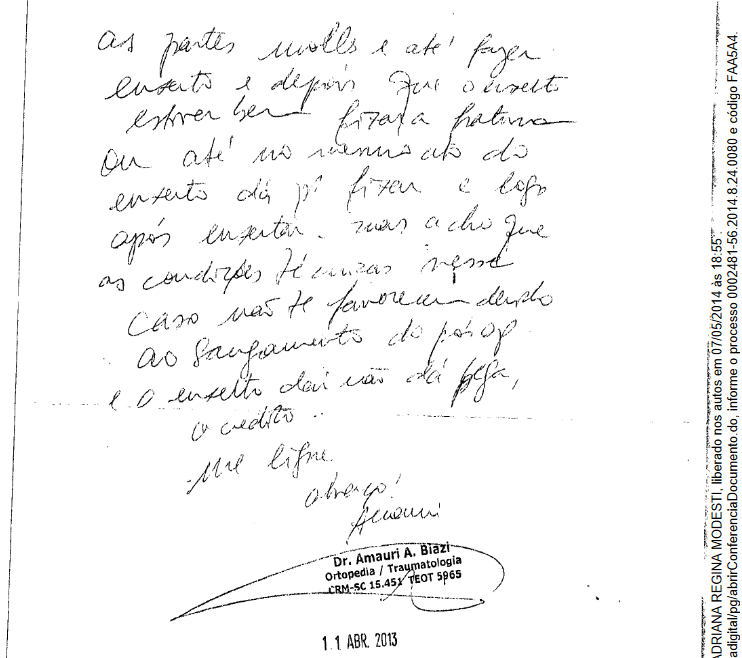 as partes molls e até fazer
enxerto e depois que o enxerto
estiver bem fixar a fratura
ou até no mesmo ato do
enxerto dá p/ fixar e logo
após enxertar. mas acho que
as condições técnicas nesse
caso não te favorecem devido
ao sangramento do pós op
e o enxerto daí não dá pega,
acredito..
me ligue
abraço!
Amauri
Dr. Amauri A. Biazi
Ortopedia / Traumatologia
CRM-SC 15.451 TEOT 5965
11 ABR. 2013
ADRIANA REGINA MODESTI, liberado nos autos em 07/05/2014 às 18:55.
adigital/pg/abrirConferenciaDocumento.do, informe o processo 0002481-56.2014.8.24.0080 e código FAA5A4.